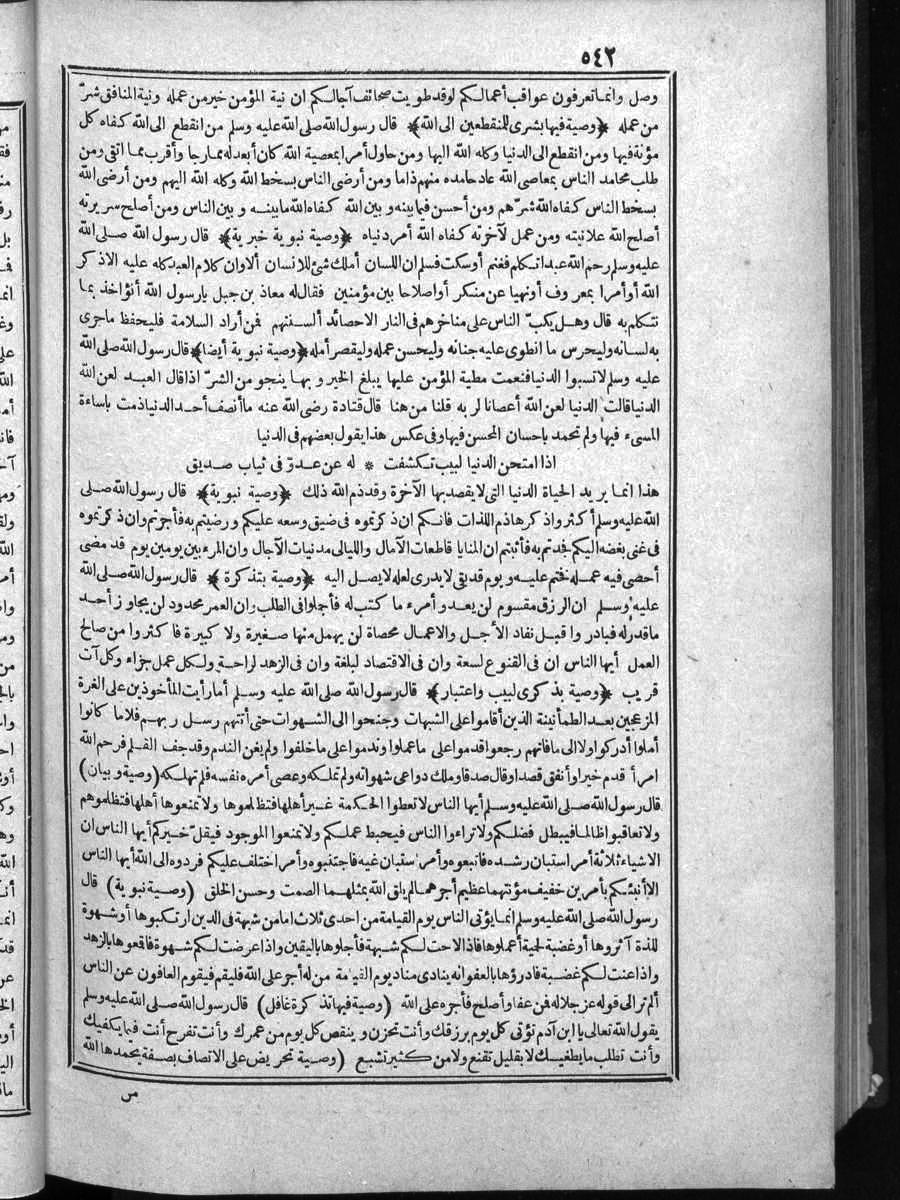 ٥٤٢
وصل وانما تعرفون عواقب أعمالكم لو قد طويت صحائف آجالكم ان نية المؤمن خير من عمله ونية المنافق شرّ
من عمله ﴿وصية فيها بشرى للمنقطعين الى الله﴾ قال رسول الله صلى الله عليه وسلم من انقطع الى الله كفاه كل
مؤنة فيها ومن انقطع الى الدنيا وكله الله اليها ومن حاول أمرا بمعصية الله كان أبعد له مما رجا وأقرب مما اتقى ومن
طلب محامد الناس بمعاصى الله عاد حامده منهم ذاما ومن أرضى الناس بسخط الله وكله الله اليهم ومن أرضى الله
بسخط الناس كفاه الله شرّهم ومن أحسن فيما بينه وبين الله كفاه الله ما بينه وبين الناس ومن أصلح سريرته
أصلح الله علانيته ومن عمل لآخرته كفاه الله أمر دنياه ﴿وصية نبوية خبرية﴾ قال رسول الله صلى الله
عليه وسلم رحم الله عبدا تكلم فغنم أو سكت فسلم ان اللسان أملك شئ للانسان ألا وان كلام العبد كله عليه الا ذكر
الله أو أمرا بمعروف أو نهيا عن منكر أو اصلاحا بين مؤمنين فقال له معاذ بن جبل يا رسول الله أنؤاخذ بما
نتكلم به قال وهل يكبّ الناس على مناخرهم فى النار الا حصائد ألسنتهم فمن أراد السلامة فليحفظ ما جرى
به لسانه وليحرس ما انطوى عليه جنانه وليحسن عمله وليقصر أمله ﴿وصية نبوية أيضا﴾ قال رسول الله صلى الله
عليه وسلم لا تسبوا الدنيا فنعمت مطية المؤمن عليها يبلغ الخير وبها ينجو من الشرّ اذا قال العبد لعن الله
الدنيا قالت الدنيا لعن الله أعصانا لربه قلنا من هنا قال قتادة رضى الله عنه ما أنصف أحد الدنيا ذمت باساءة
المسىء فيها ولم تحمد باحسان المحسن فيها وفى عكس هذا يقول بعضهم فى الدنيا
اذا امتحن الدنيا لبيب تكشفت * له عن عدوّ فى ثياب صديق
هذا انما يريد الحياة الدنيا التى لا يقصد بها الآخرة وقد ذم الله ذلك ﴿وصية نبوية﴾ قال رسول الله صلى
الله عليه وسلم أكثروا ذكر هاذم اللذات فانكم ان ذكرتموه فى ضيق وسعه عليكم ورضيتم به فأجرتم وان ذكرتموه
فى غنى بغضه اليكم فجدتم به فأثبتم ان المنايا قاطعات الآمال والليالى مدنيات الآجال وان المرء بين يومين يوم قد مضى
أحصى فيه عمله فختم عليه ويوم قد بقى لا يدرى لعله لا يصل اليه ﴿وصية بتذكرة﴾ قال رسول الله صلى الله
عليه وسلم ان الرزق مقسوم لن يعدو أمرء ما كتب له فأجملوا فى الطلب وان العمر محدود لن يجاوز أحد
ما قدر له فبادروا قبل نفاد الأجل والاعمال محصاة لن يهمل منها صغيرة ولا كبيرة فاكثروا من صالح
العمل أيها الناس ان فى القنوع لسعة وان فى الاقتصاد لبلغة وان فى الزهد لراحة ولكل عمل جزاء وكل آت
قريب ﴿وصية بذكرى لبيب واعتبار﴾ قال رسول الله صلى الله عليه وسلم أما رأيت المأخوذين على الغرة
المزعجين بعد الطمأنينة الذين أقاموا على الشبهات وجنحوا الى الشهوات حتى أتتهم رسل ربهم فلا ما كانوا
أملوا أدركوا ولا الى ما فاتهم رجعوا قدموا على ما عملوا وندموا على ما خلفوا ولم يغن الندم وقد جف القلم فرحم الله
امرأ قدم خيرا وأنفق قصدا وقال صدقا وملك دواعى شهواته ولم تملكه وعصى أمره نفسه فلم تهلكه (وصية وبيان)
قال رسول الله صلى الله عليه وسلم أيها الناس لا تعطوا الحكمة غير أهلها فتظلموها ولا تمنعوها أهلها فتظلموهم
ولا تعاقبوا ظالما فيبطل فضلكم ولا تراءوا الناس فيحبط عملكم ولا تمنعوا الموجود فيقلّ خيركم أيها الناس ان
الاشياء ثلاثة أمر استبان رشده فاتبعوه وأمر استبان غيه فاجتنبوه وأمر اختلف عليكم فردوه الى الله أيها الناس
الا أنبئكم بأمرين خفيف مؤنتهما عظيم أجرهما لم يلق الله بمثلهما الصمت وحسن الخلق (وصية نبوية) قال
رسول الله صلى الله عليه وسلم انما يؤتى الناس يوم القيامة من احدى ثلاث اما من شبهة فى الدين ارتكبوها أو شهوة
للذة آثروها أو غضبة لحمية أعملوها فاذا لاحت لكم شبهة فأجلوها باليقين واذا عرضت لكم شهوة فاقمعوها بالزهد
واذا عنت لكم غضبة فادرؤها بالعفو انه ينادى مناد يوم القيامة من له أجر على الله فليقم فيقوم العافون عن الناس
ألم تر الى قوله عز جلاله فمن عفا وأصلح فأجره على الله (وصية فيها تذكرة غافل) قال رسول الله صلى الله عليه وسلم
يقول الله تعالى يا ابن آدم تؤتى كل يوم برزقك وأنت تحزن وينقص كل يوم من عمرك وأنت تفرح أنت فيما يكفيك
وأنت تطلب ما يطغيك لا بقليل تقنع ولا من كثير تشبع (وصية تحريض على الاتصاف بصفة يحمدها الله
من